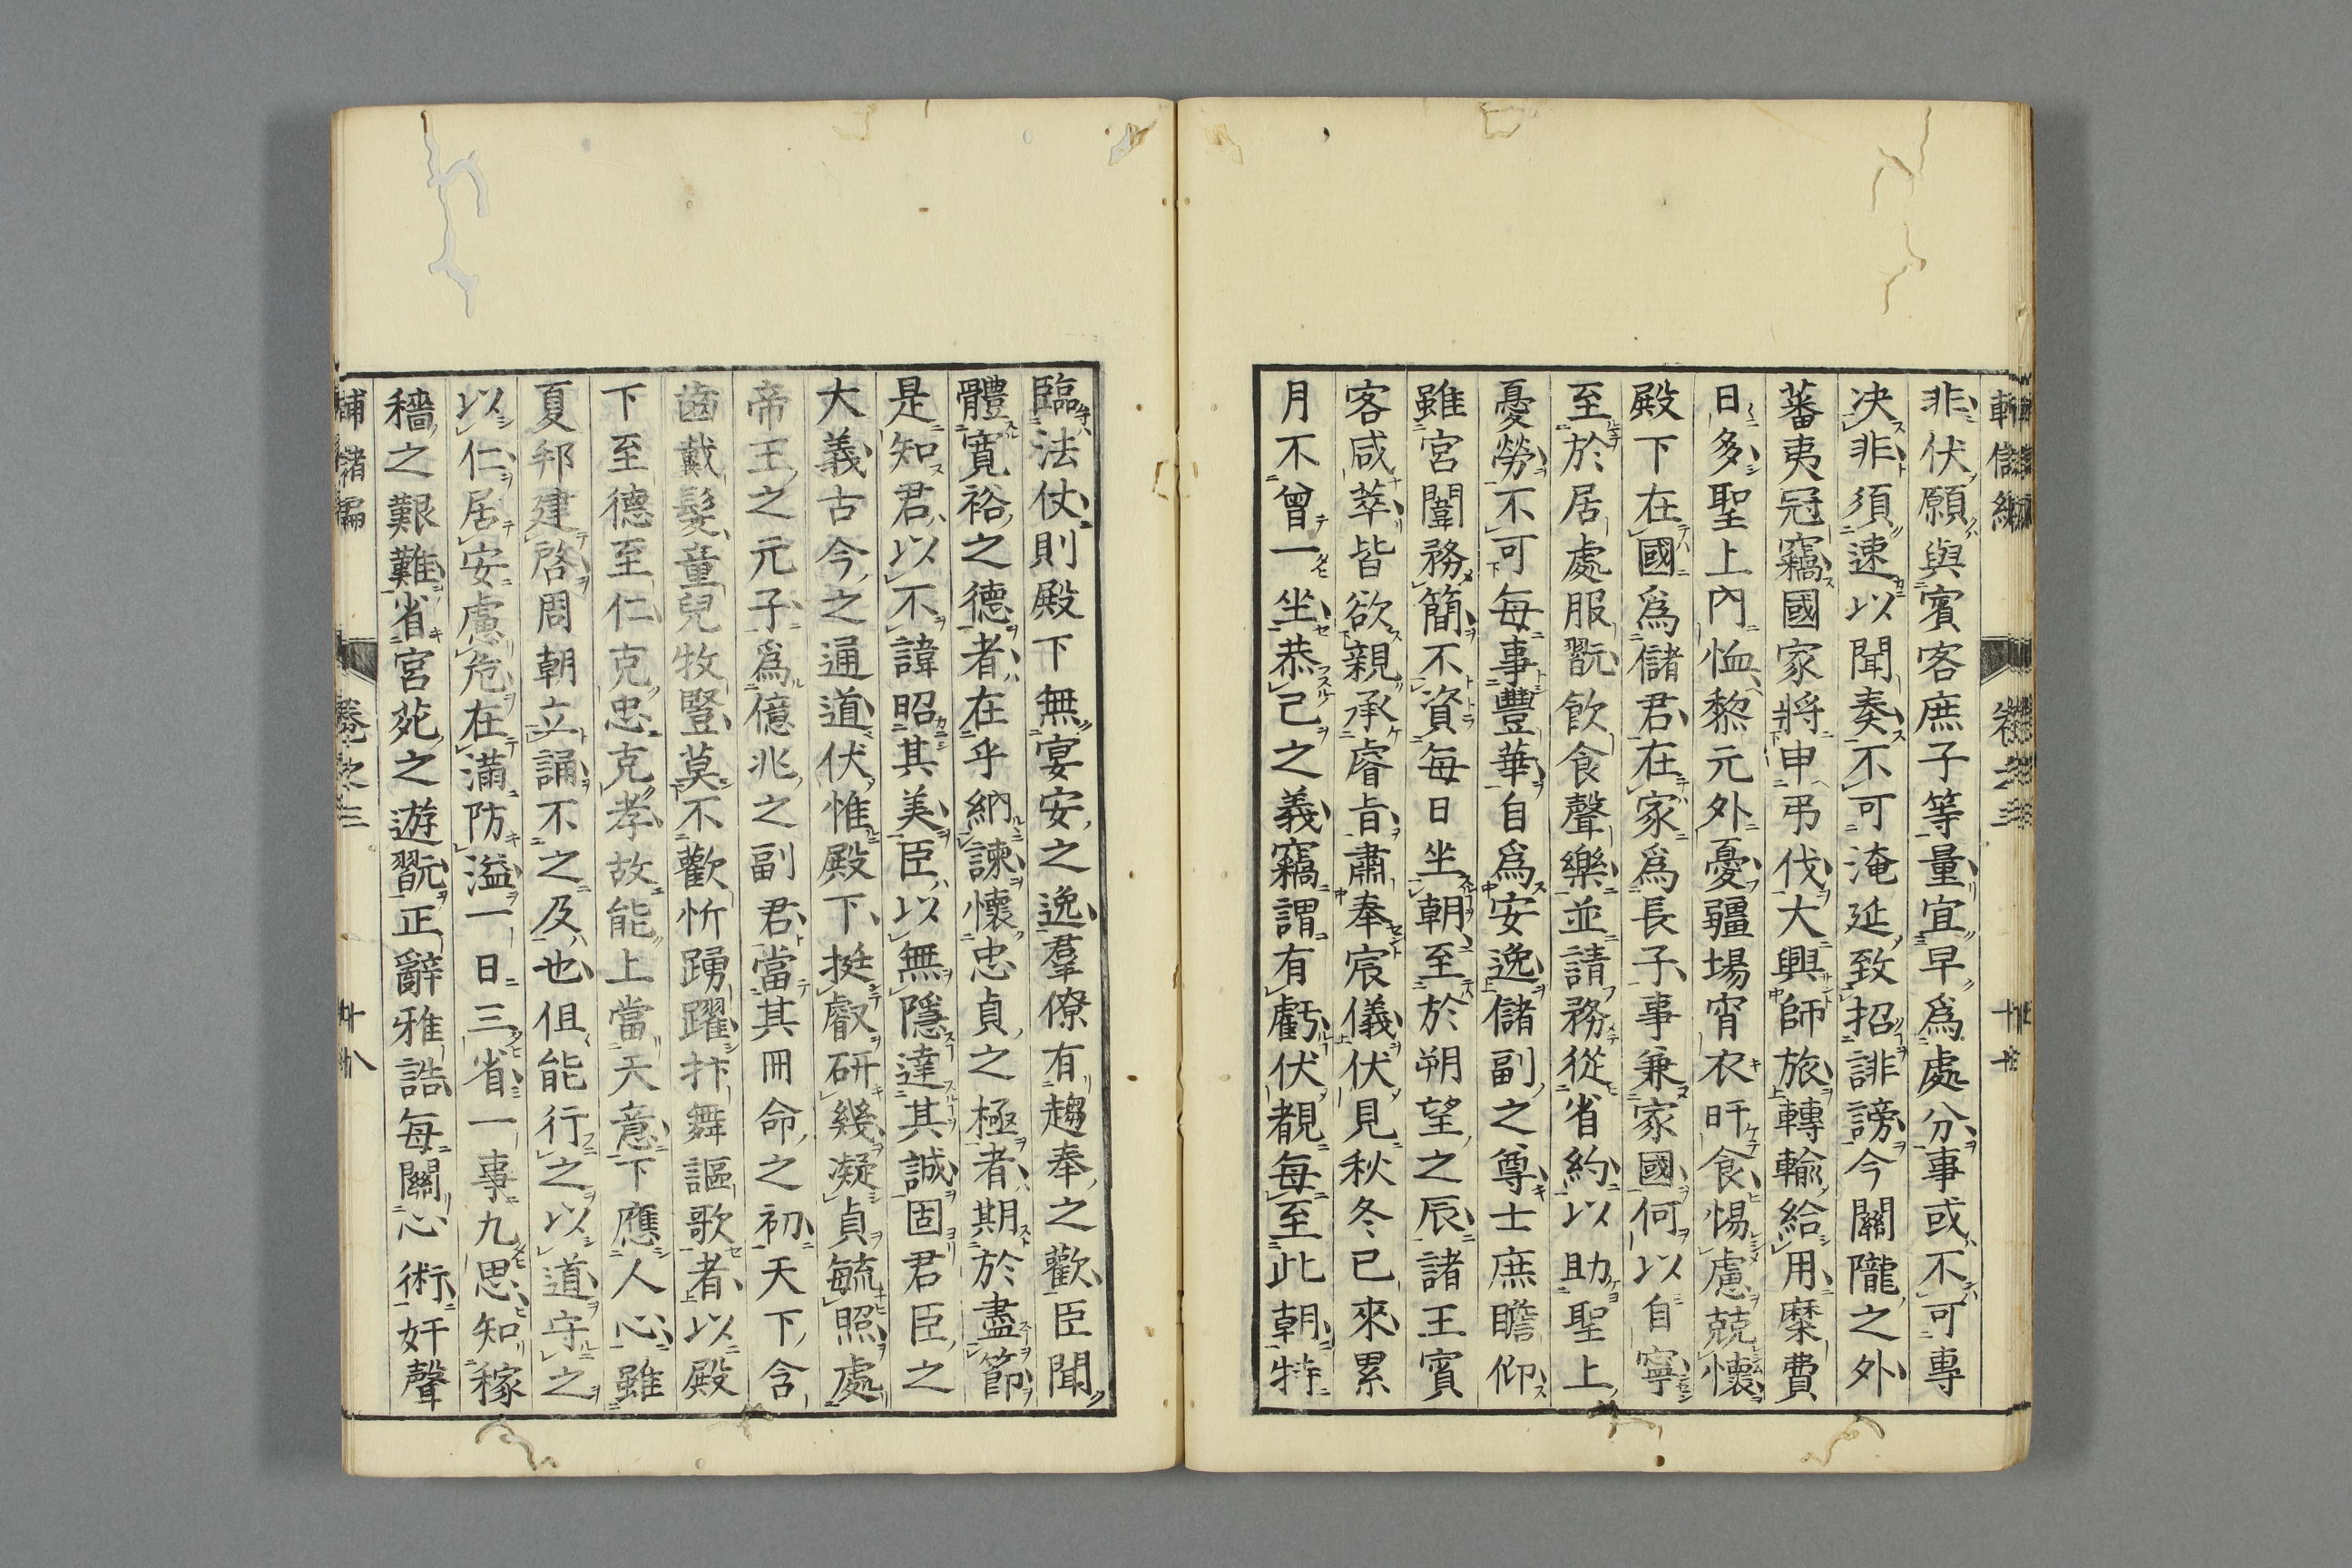 非伏願與賓客庶子等量宜早爲處分事或不可專
决非須速以聞奏不可淹延致招誹謗今關隴之外
蕃夷冦竊國家將申弔伐大興師旅轉輸給用糜費
日多聖上內恤黎元外憂疆場宵衣旰食惕慮兢懷
殿下在國爲儲君在家爲長子事兼家國何以自寧
至於居處服翫飮食聲樂並請務從省約以助聖上
憂勞不可每事豐華自爲安逸儲副之尊士庶瞻仰
雖宮闈務簡不資每日坐朝至於朔望之辰諸王賓
客咸萃皆欲親承睿旨肅奉宸儀伏見秋冬已來累
月不曾一坐恭己之義竊謂有虧伏覩每至此朝特
臨法仗則殿下無宴安之逸羣僚有趨奉之歡臣聞
體寛裕之德者在乎納諫懷忠貞之極者期於盡節
是知君以不諱昭其美臣以無隱達其誠固君臣之
大義古今之通道伏惟殿下挺叡硏幾凝貞毓照處
帝王之元子爲億兆之副君當其冊命之初天下含
齒戴髮童兒牧豎莫不歡忻踴躍抃舞謳歌者以殿
下至德至仁克忠克孝故能上當天意下應人心雖
夏邦建啓周朝立誦不之及也伹能行之以道守之
以仁居安慮危在滿防溢一日三省一事九思知稼
穡之艱難省宮苑之遊翫正辭雅誥每關心術奸聲
補諸編 卷之三 廿八